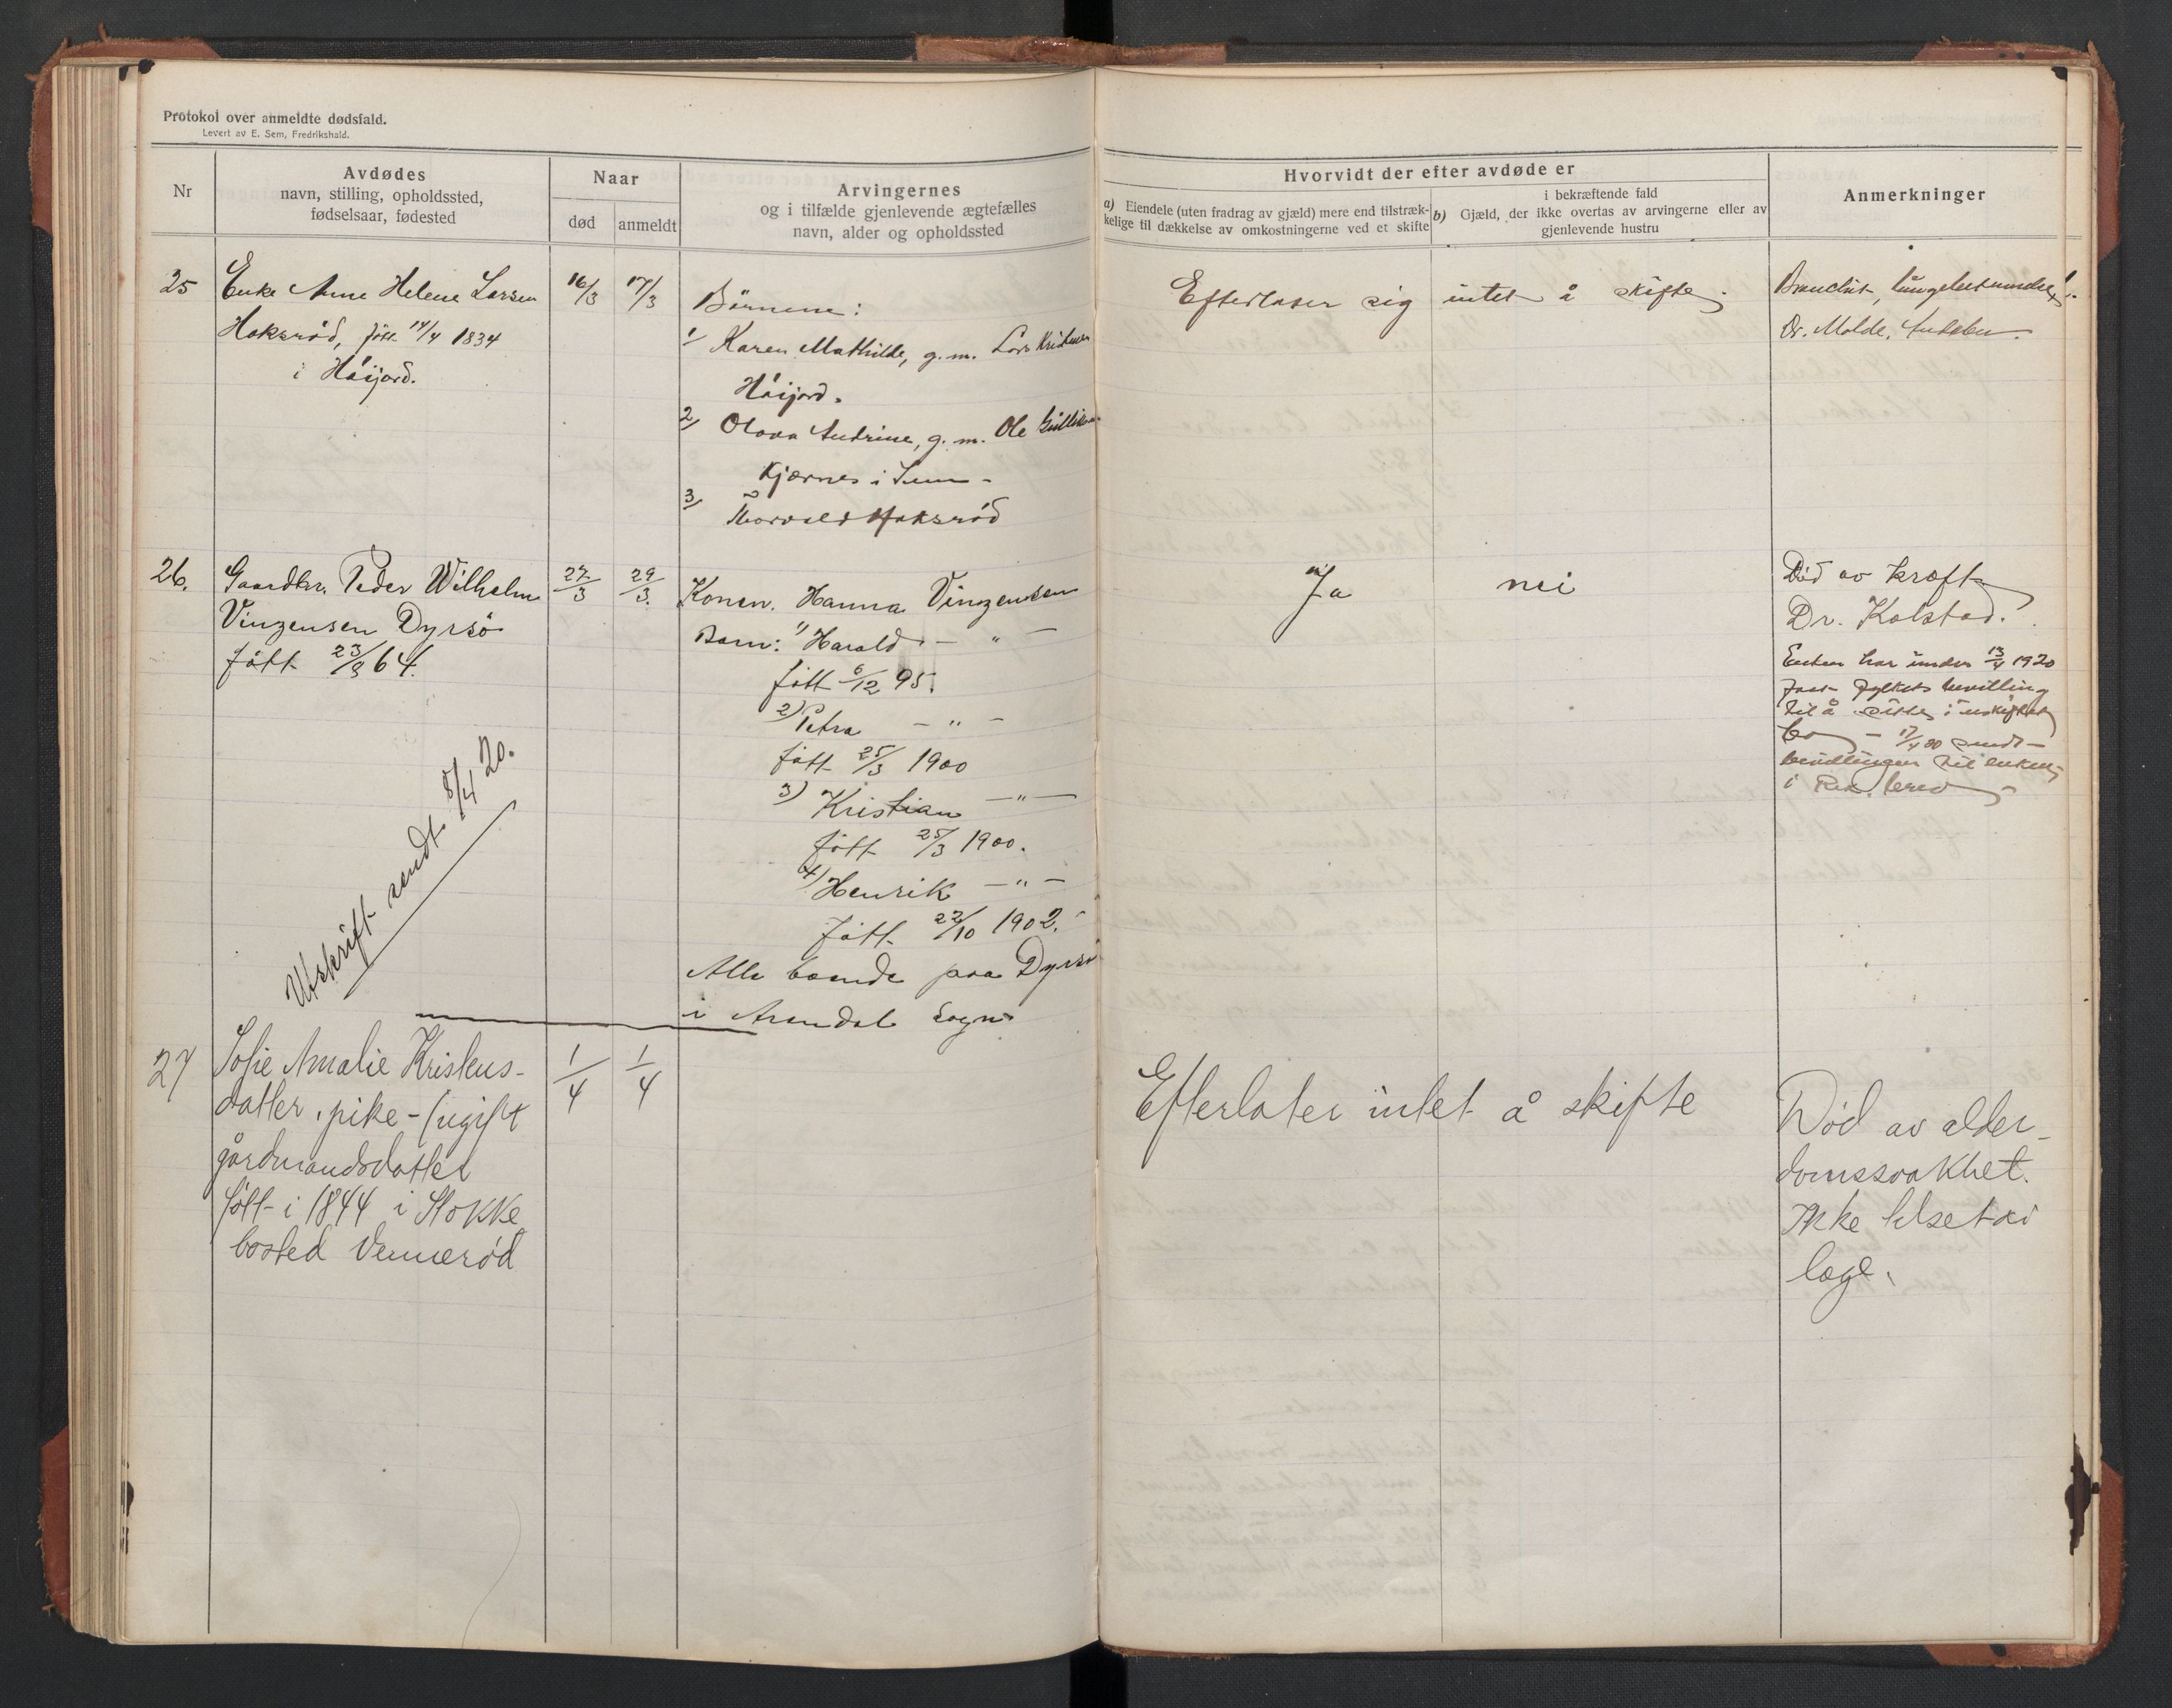 Protokol over anmeldte dødsfald.
Levert av E. Sem, Fredrikshald.
Nr
Avdødes
navn, stilling, opholdssted,
fødselsaar, fødested
Naar
død
anmeldt
Arvingernes
og i tilfælde gjenlevende ægtefælles
navn, alder og opholdssted
Hvorvidt der efter avdøde er
a) Eiendele (uten fradrag av gjæld) mere end tilstræk-
kelige til dækkelse av omkostningerne ved et skifte
i bekræftende fald
b) Gjæld, der ikke overtas av arvingerne eller av
gjenlevende hustru
Anmerkninger
25
Enke Anne Helene Larsen
Haksrød, født 14/4 1834
i Høijord.
16/3
17/3
Børnene:
1/ Karen Mathilde, g. m. Lars Kristensen
Høijord.
2/ Olava Andrine, g. m. Ole Gulliksen
Kjærnes i Sem
3/ Thorvald Haksrød
Efterlater sig intet å skifte.
Dr. Molde, Andebu.
26.
Gaardbr. Peder Wilhelm
Vinzensen Dyrsø
født 23/8 64.
Utskrift sendt 8/4 20.
27/3
29/3.
Konen. Hanna Vinzensen
Barn: 1) Harald - " -
født 6/12 95.
2) Petra - " -
født 25/3 1900
3) Kristian - " -
født 25/3 1900.
4) Henrik - " -
født 22/10 1902.
Alle boende paa Dyrsø
i Arendal Sogn
Ja
nei
Død av kræft
Dr. Kolstad.
Enken har under 13/4 1920
faat fylkets bevilling
til å sitte i uskiftet
bo - 17/4 20 sendt
bevillingen til enken
i Rek. brev
27
Sofie Amalie Kristens-
datter, pike - (ugift
gårdmandsdatter
født i 1844 i Stokke
bosted Vennerød
1/4
1/4
Efterlater intet å skifte
Død av alder-
domssvakhet.
Ikke tilset av
læge.